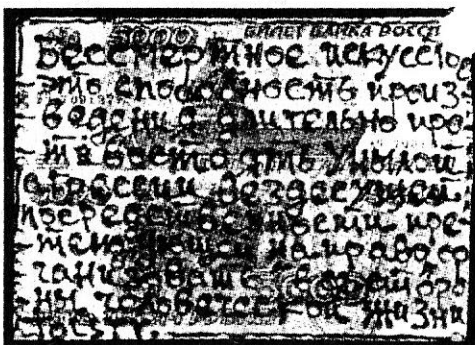 5000 БИЛЕТ БАНКА РОССИ
Бессмертное искусство
это способность произ
ведения длительно про
тивостоять унылой
агрессии вездесущей
посредственности, пре
тендующей на право ор
ганизовывать
человеческой жизни